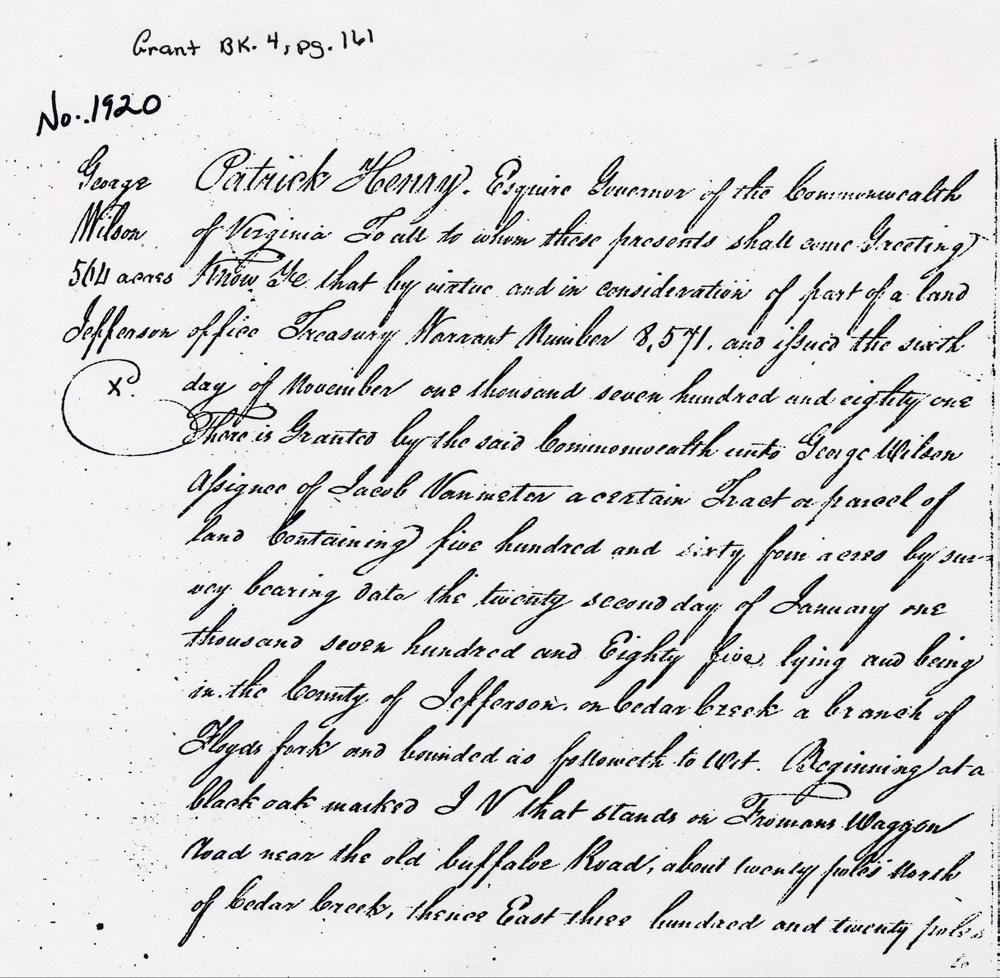 Grant BK. 4, pg. 161
No. 1920
George
Wilson
564 acres
Jefferson
X.
Patrick Henry. Esquire Governor of the Commonwealth
of Virginia To all to whom these presents shall come Greeting
Know Ye that by virtue and in consideration of part of a land
office Treasury Warrant Number 8,571. and issued the sixth
day of November one thousand seven hundred and eighty one
There is Granted by the said Commonwealth unto George Wilson
Assignee of Jacob Vanmeter a certain Tract or parcel of
land Containing five hundred and sixty four acres by sur-
vey bearing date the twenty second day of January one
thousand seven hundred and Eighty five lying and being
in the County of Jefferson. on Cedar Creek a branch of
Floyds fork and bounded as followeth to Wit. Beginning at a
black oak marked I V that stands on Fromans Waggon
road near the old buffaloe Road, about twenty poles North
of Cedar Creek, thence East three hundred and twenty poles
to